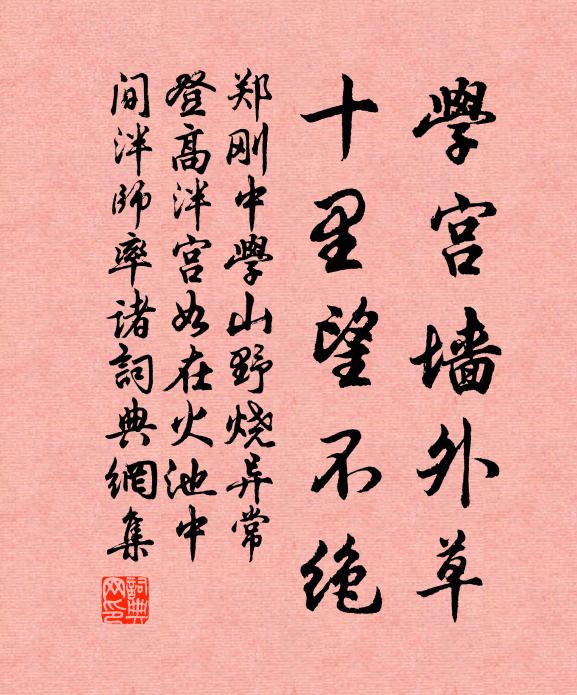 學宫墙外草
十里望不绝
郑刚中學山野烧异常
登高泮宫如在火池中
间泮师率诸詞典網集
詞典網印